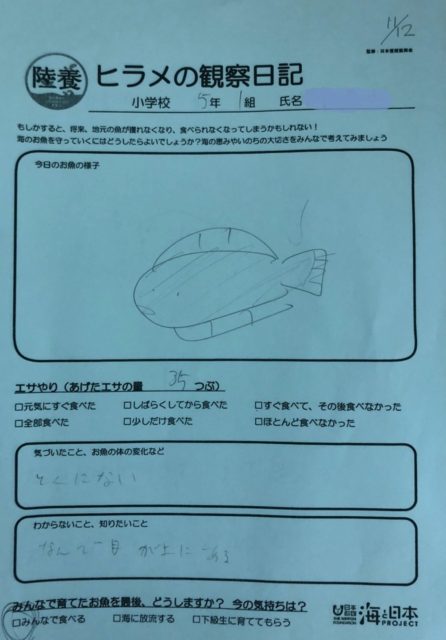 11/12
監修：日本養殖振興会
陸養
ヒラメの観察日記
小学校 5年 1組 氏名
もしかすると、将来、地元の魚が獲れなくなり、食べられなくなってしまうかもしれない！
海のお魚を守っていくにはどうしたらよいでしょうか？海の恵みやいのちの大切さをみんなで考えてみましょう
今日のお魚の様子
エサやり（あげたエサの量 35 つぶ）
□元気にすぐ食べた □しばらくしてから食べた □すぐ食べて、その後食べなかった
□全部食べた □少しだけ食べた □ほとんど食べなかった
気づいたこと、お魚の体の変化など
とくにない
わからないこと、知りたいこと
なんで目が上にある
みんなで育てたお魚を最後、どうしますか？ 今の気持ちは？
□みんなで食べる □海に放流する □下級生に育ててもらう
日本財団
THE NIPPON FOUNDATION
海と日本
PROJECT